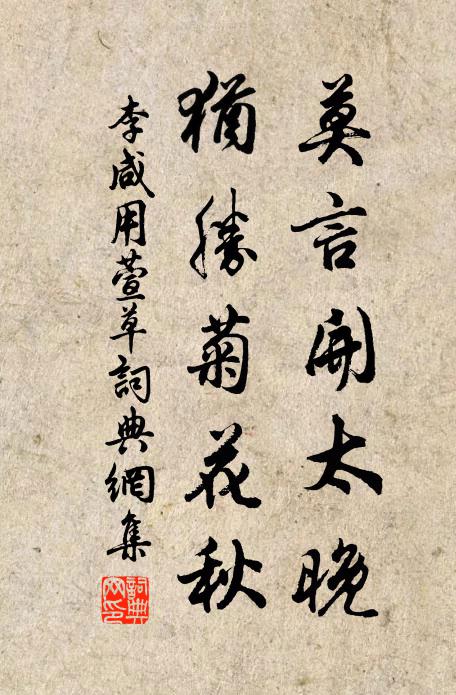 莫言開太晚
猶勝菊花秋
李咸用萱草詞典網集
詞典網印